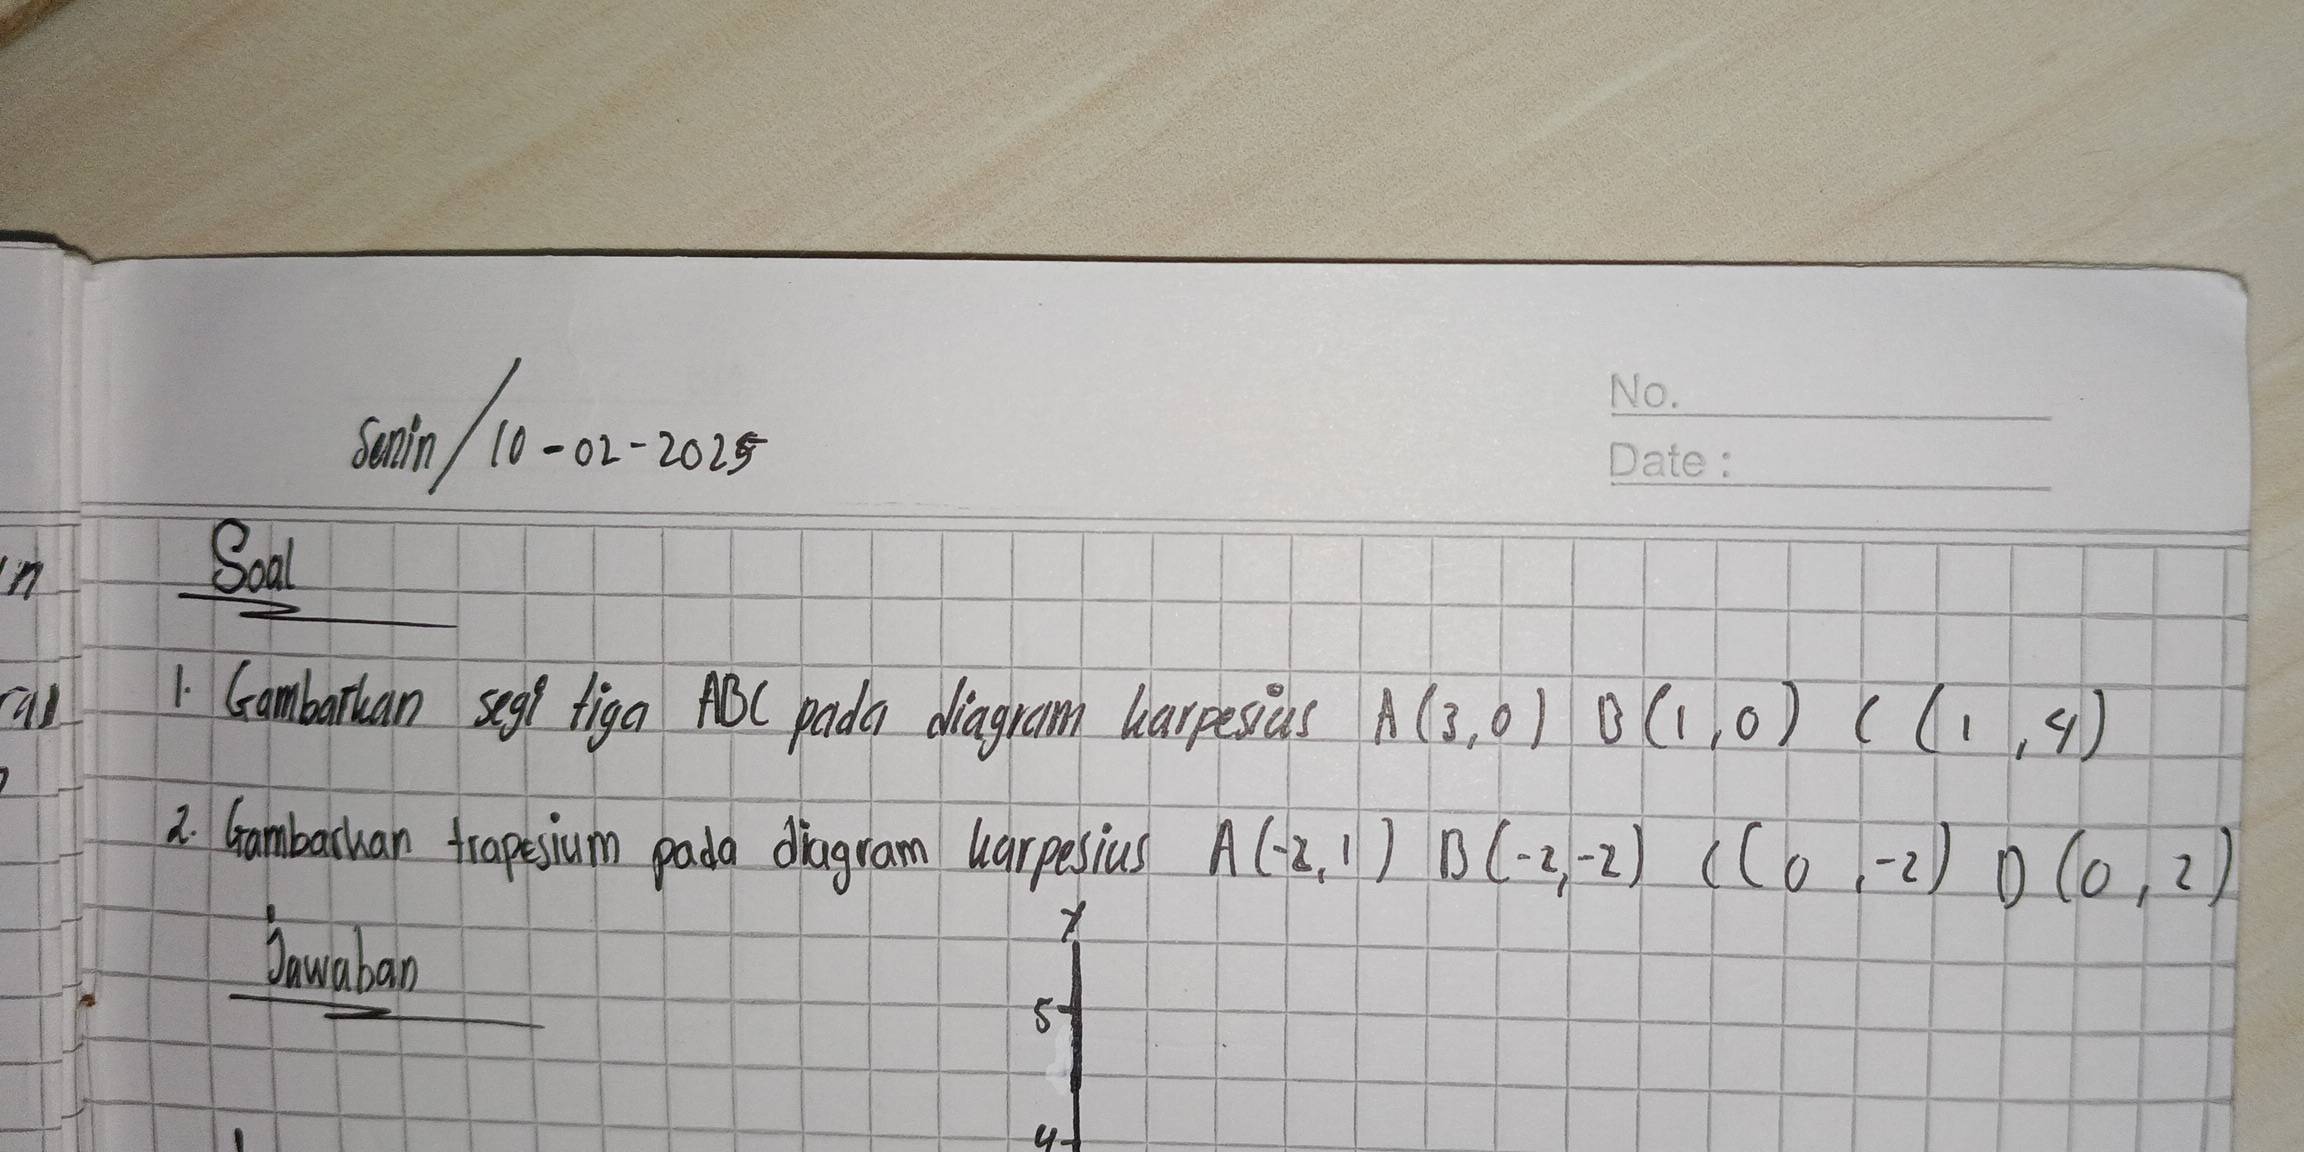 No.
Senin / 10-02-2025
Date :
Soal
1. Gambarkan segi tiga ABC pada diagram karpesius A(3,0) B(1,0) C(1,4)
2. Gambarkan trapesium pada diagram karpesius A(-2,1) B(-2,-2) C(0,-2) D(0,2)
Jawaban
Y
5
4